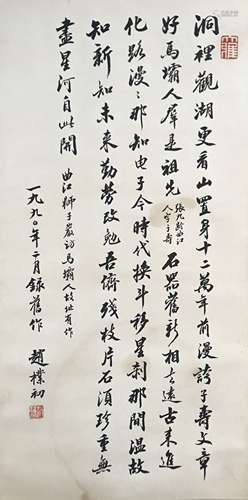 洞裡觀湖更看山置身十二萬年前漫誇子壽文章
好馬壩人群是祖先 張九齡曲江人字子壽 石器舊新相去遠古來進
化路漫漫那知电子今時代換斗移星剎那間温故
知新知未來勤勞勉吾儕殘枝片石須珍重無
盡星河自此開 曲江獅子巖訪馬壩人故址有作
一九九〇年二月錄舊作 趙樸初